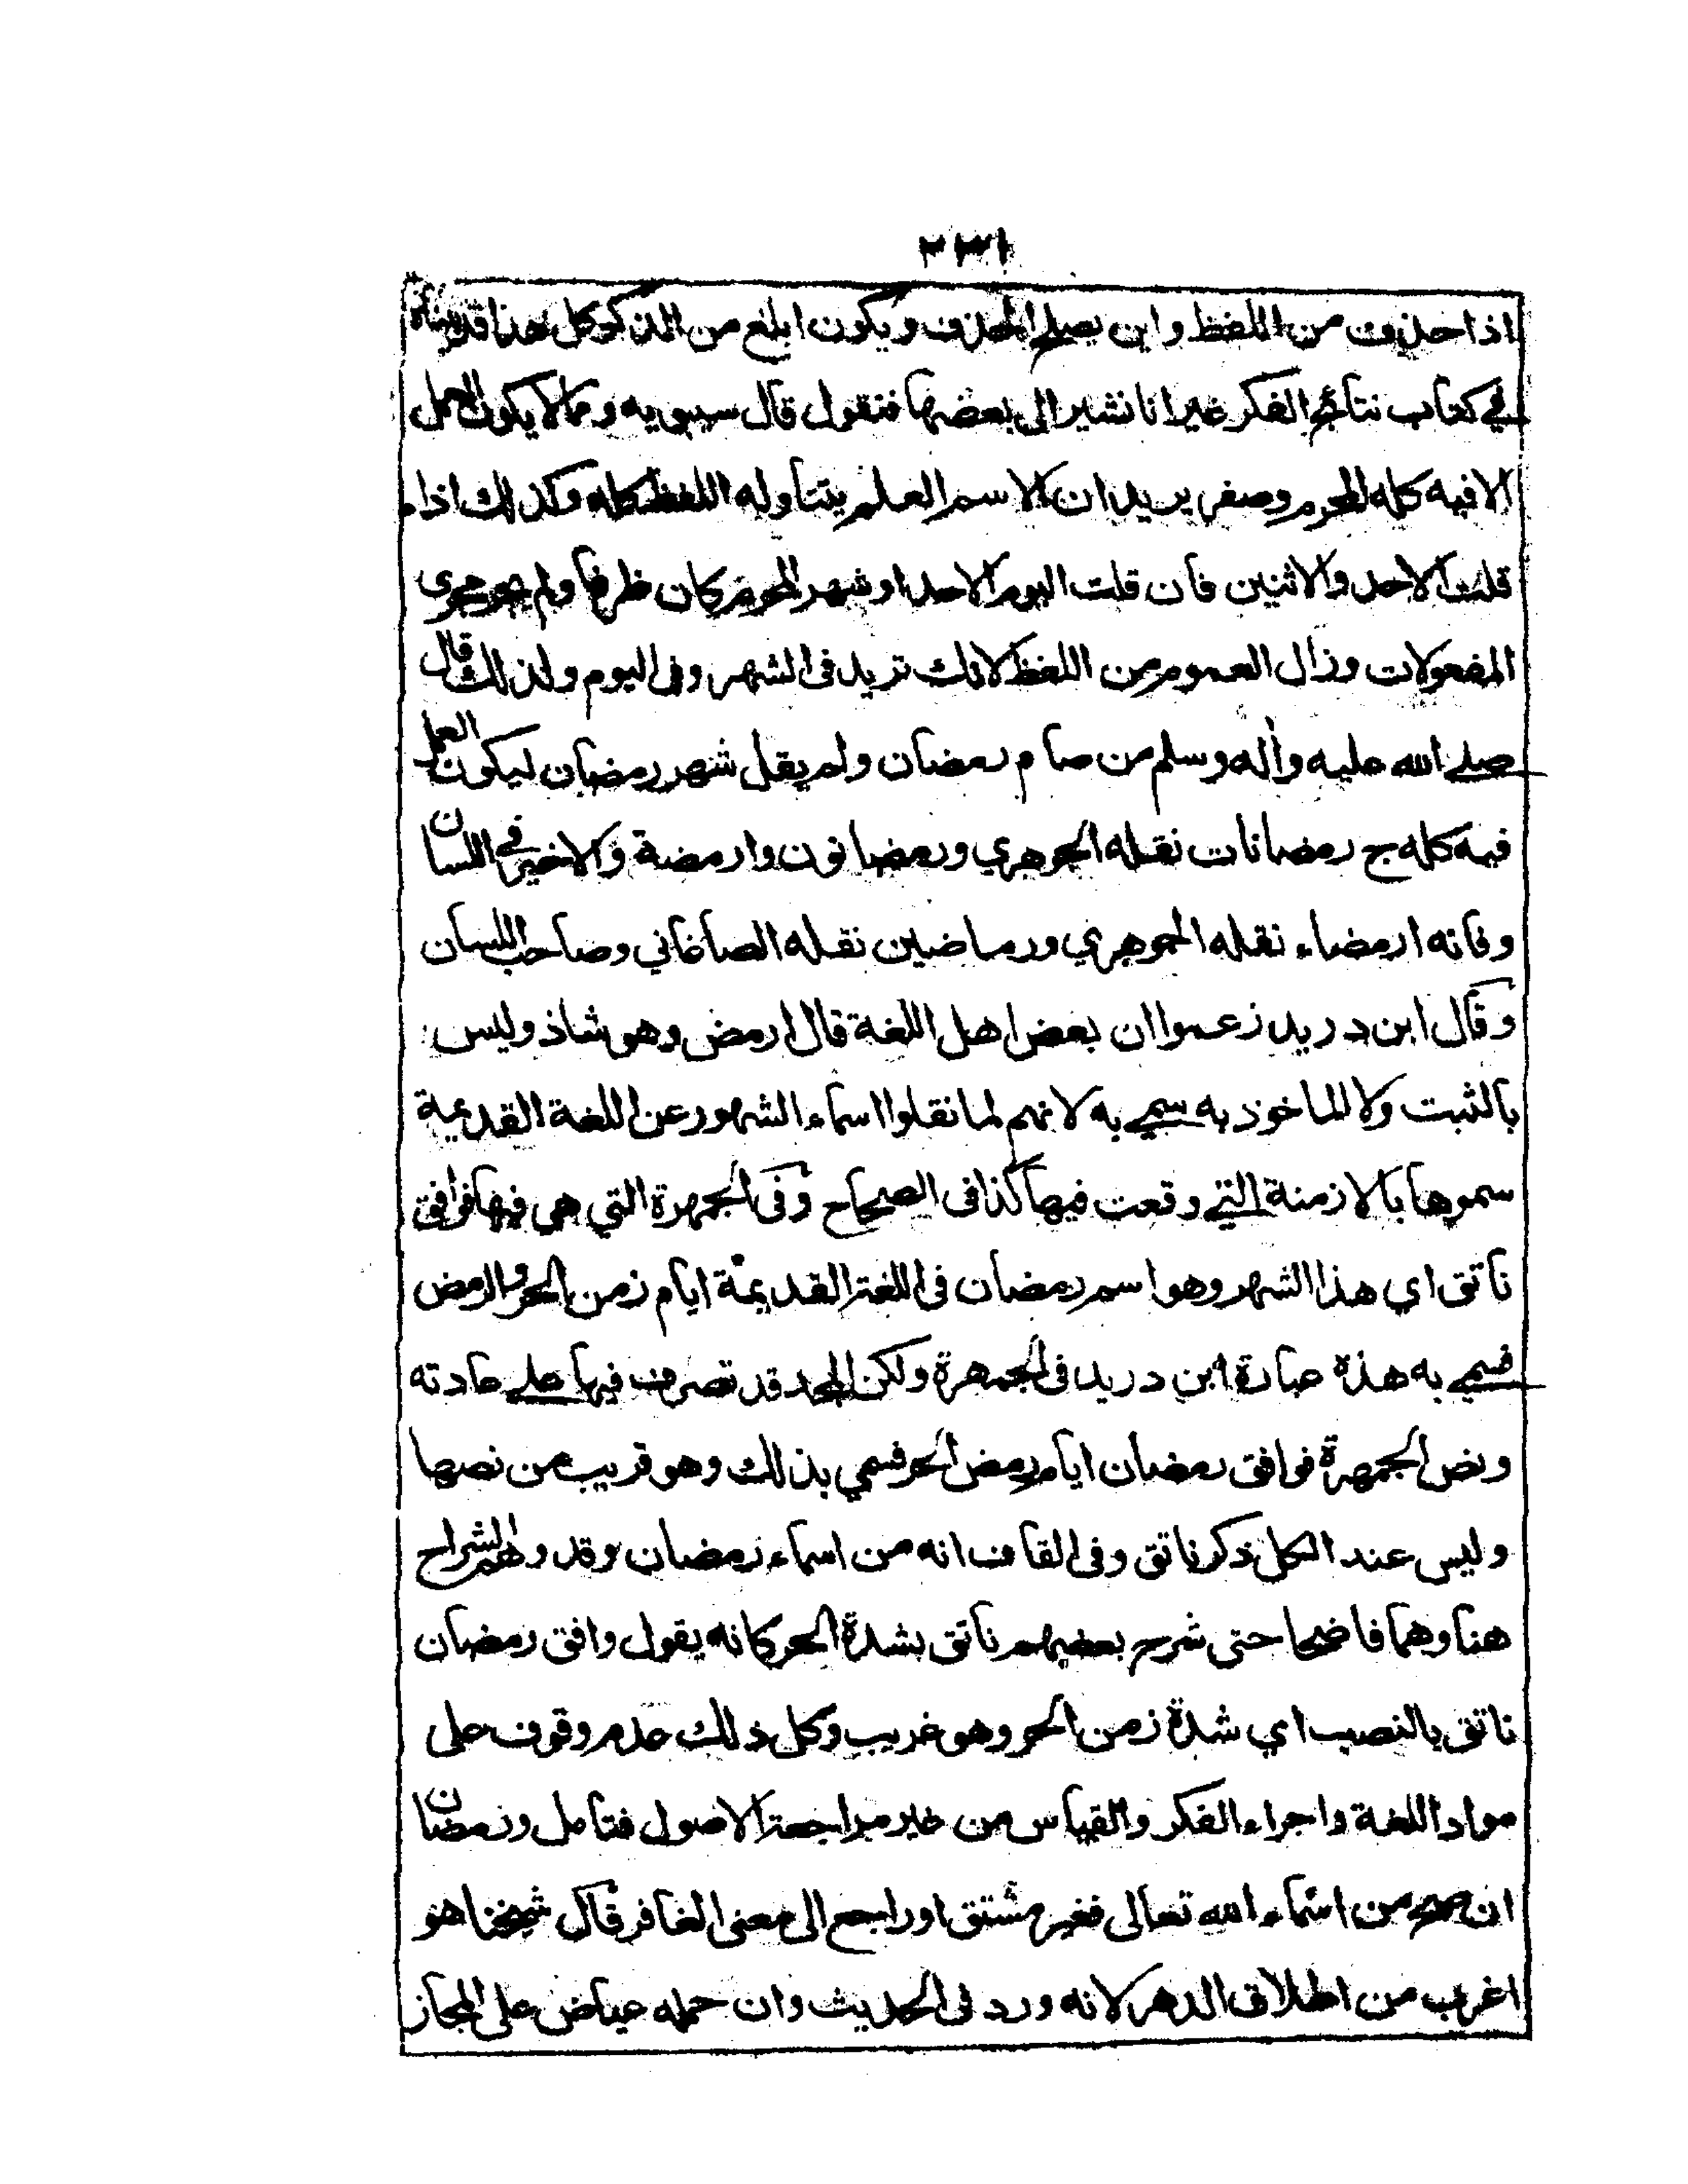 ٢٣١
اذا حذف من اللفظ واين يصلح الحذف ويكون ابلغ من الذكر كل هذا قد بيناه
في كتاب نتائج الفكر غير انا نشير الى بعضها فنقول قال سيبويه ومما لا يكون العمل
الا فيه كله المحرم وصفر يريد ان الاسم العلم يتناوله اللفظ كله وكذلك اذا
قلت الاحد والاثنين فان قلت اليوم الاحد او شهر المحرم كان ظرفا ولم يجر مجرى
المفعولات وزال العموم من اللفظ لانك تريد فى الشهر وفى اليوم ولذلك قال
صلے الله عليه وآله وسلم من صام رمضان ولم يقل شهر رمضان ليكون العمل
فيه كله ج رمضانات نقله الجوهري ورمضانون وارمضة والاخير في اللسان
وفاته ارمضاء نقله الجوهري ورماضين نقله الصاغاني وصاحب اللسان
وقال ابن دريد زعموا ان بعض اهل اللغة قال ارمض وهو شاذ وليس
بالثبت ولا الماخوذ به سمي به لانهم لما نقلوا اسماء الشهور عن اللغة القديمة
سموها بالازمنة التے وقعت فيها كذا فى الصحاح وفى الجمهرة التي هي فيها فوافق
ناتق اي هذا الشهر وهو اسم رمضان فى اللغة القديمة ايام زمن الحر والرمض
فسمي به هذه عبارة ابن دريد فى الجمهرة ولكن المجد قد تصرف فيها علے عادته
ونص الجمهرة فوافق رمضان ايام رمض الحر فسمي بذلك وهو قريب من نصها
وليس عند الكل ذكر ناتق وفى القاف انه من اسماء رمضان وقد وهم الشراح
هنا وهما فاضحا حتى شرح بعضهم ناتق بشدة الحر كانه يقول وافق رمضان
ناتق بالنصب اي شدة زمن الحر وهو غريب وكل ذلك عدم وقوف على
مواد اللغة واجراء الفكر والقياس من غير مراجعة الاصول فتامل ورمضان
ان صح من اسماء الله تعالى فغير مشتق او راجع الى معنى الغافر قال شيخنا هو
اغرب من اطلاق الدهر لانه ورد فى الحديث وان حمله عياض على المجاز